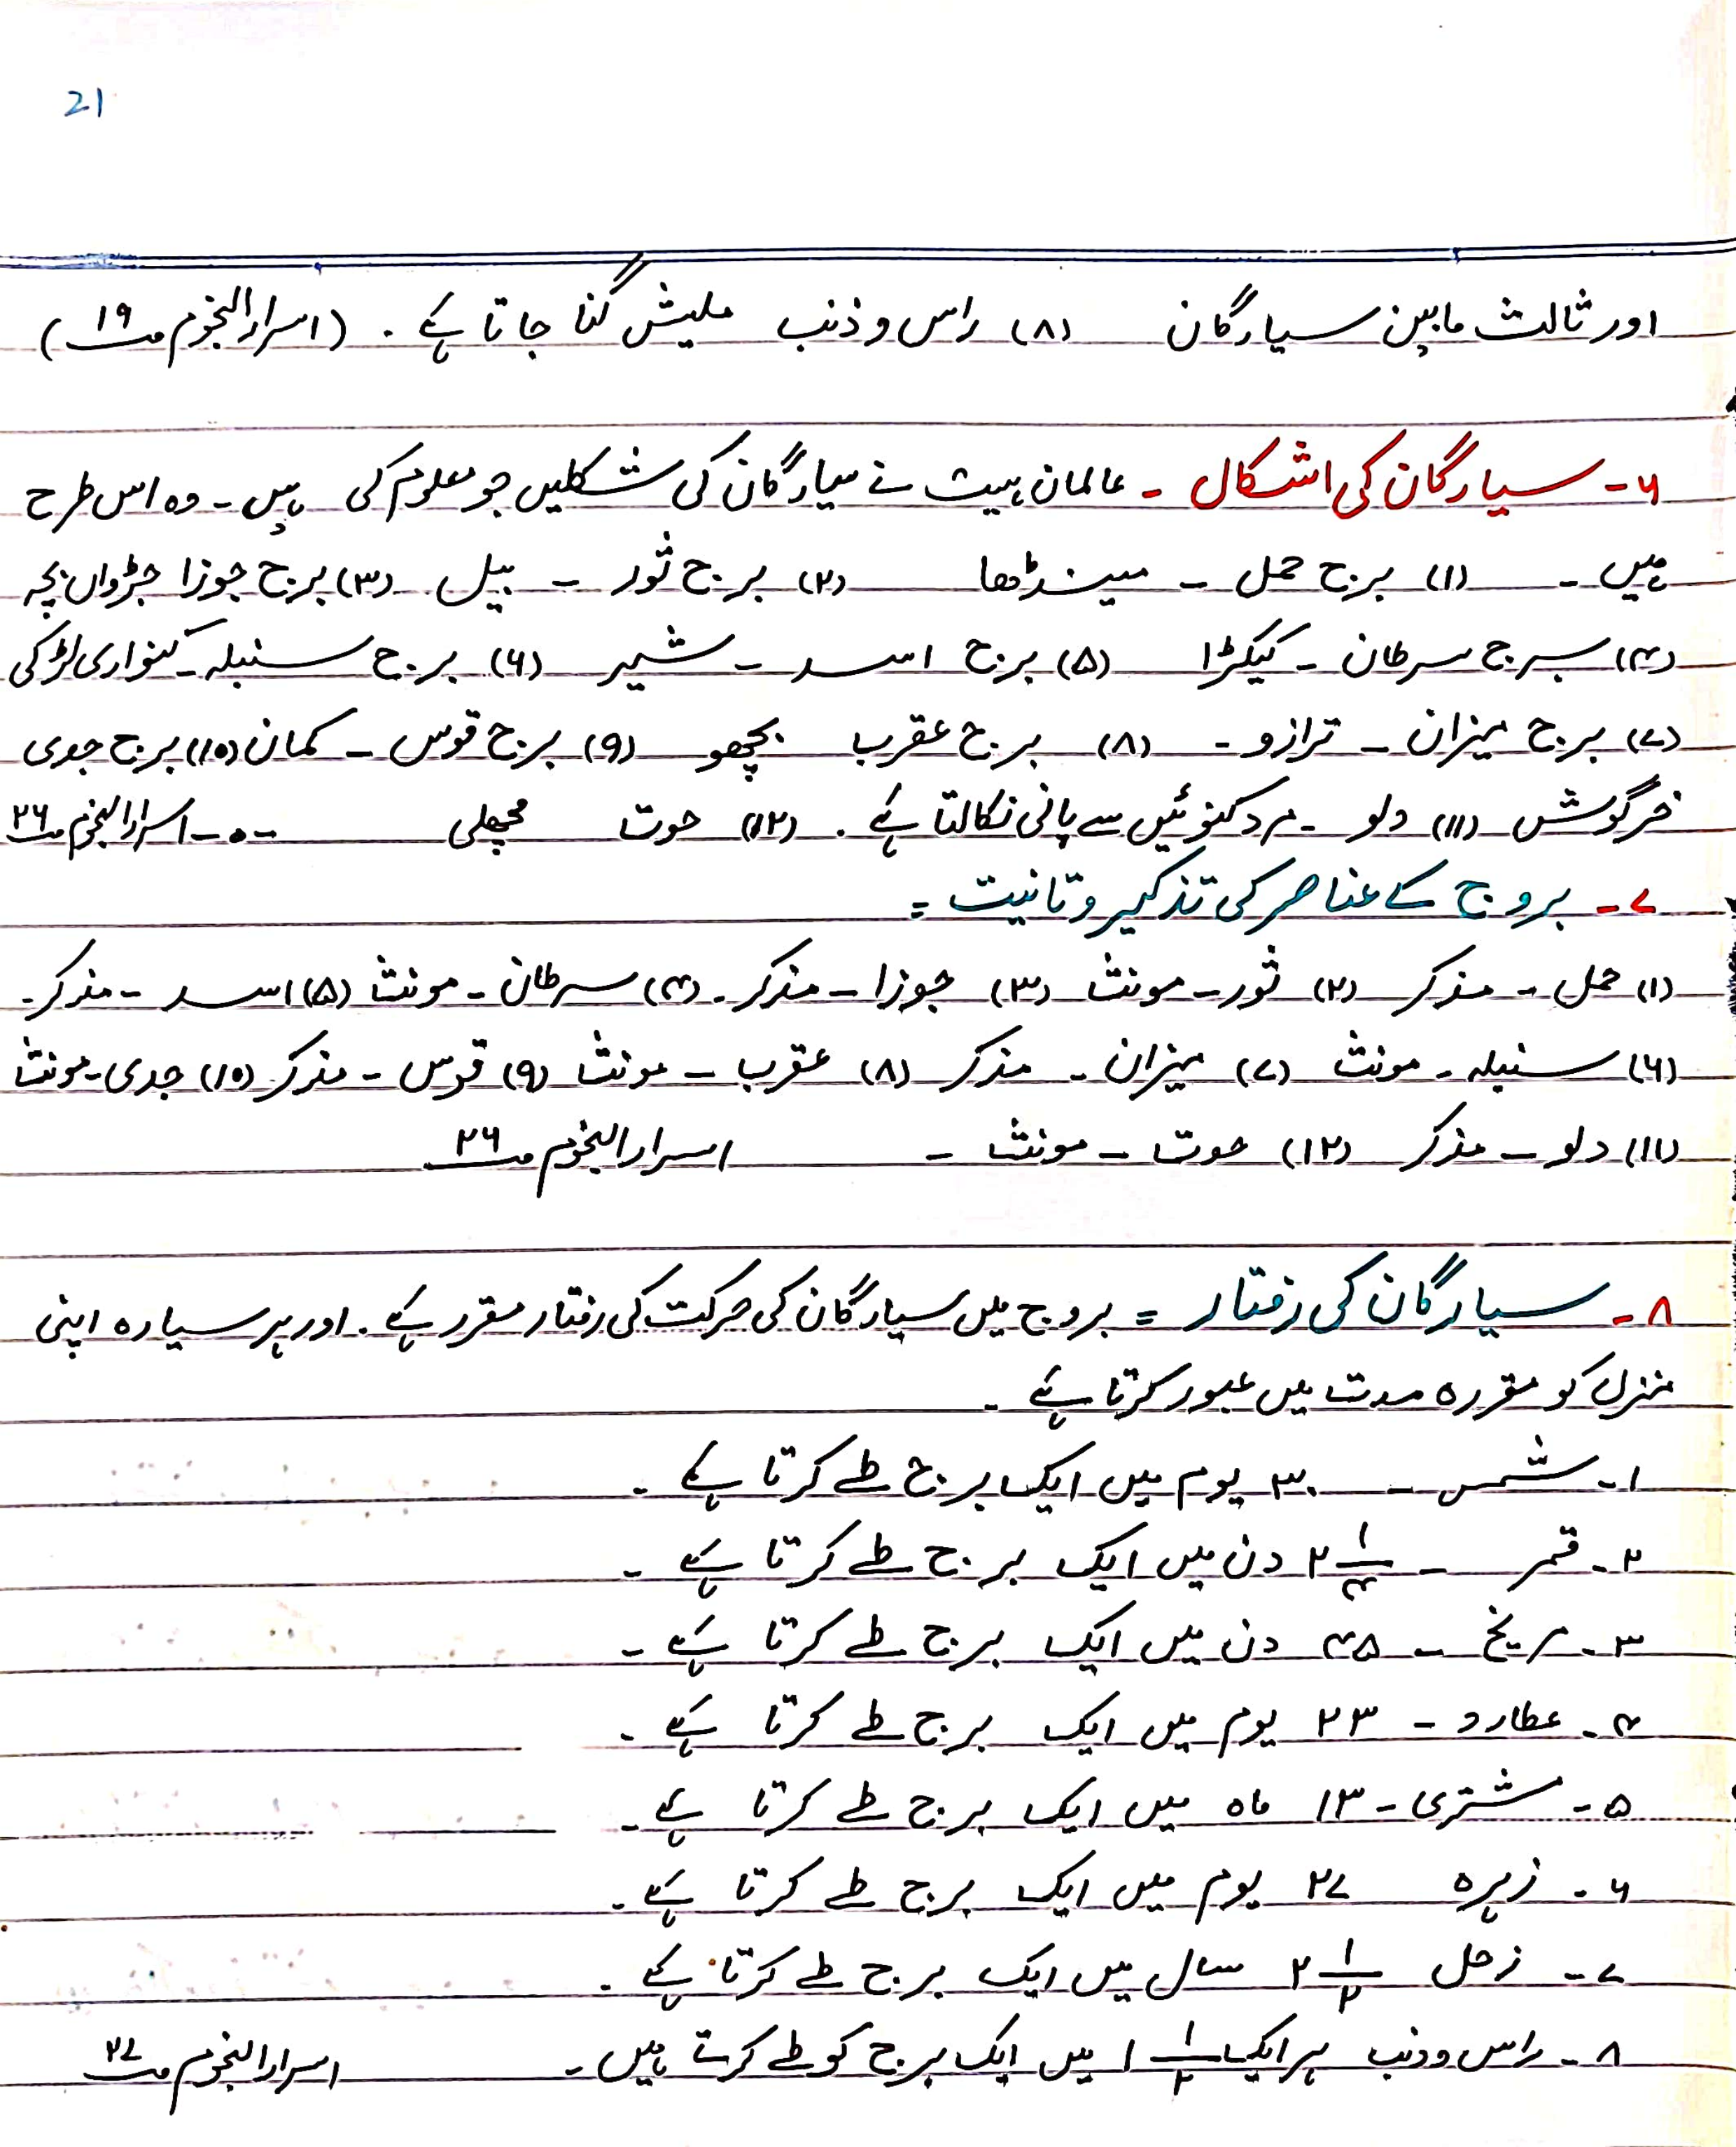 21
اور ثالث مابین سیارگان (۸) راس و ذنب ملیش گنا جاتا ہے ۔ (اسرار النجوم صـ ۱۹)
۶ - سیارگان کی اشکال - عالمان ہیت نے سیارگان کی شکلیں جو معلوم کی ہیں - وہ اس طرح
ہیں - (۱) برج حمل - مینڈھا (۲) برج ثور - بیل (۳) برج جوزا جڑواں بچہ
(۴) برج سرطان - کیکڑا (۵) برج اسد - شیر (۶) برج سنبلہ - کنواری لڑکی
(۷) برج میزان - ترازو - (۸) برج عقرب بچھو (۹) برج قوس - کمان (۱۰) برج جدی
خرگوش (۱۱) دلو - مرد کنوئیں سے پانی نکالتا ہے . (۱۲) حوت مچھلی -۰- اسرار النجوم صـ ۲۶
۷ - بروج کے عناصر کی تذکیر و تانیت =
(۱) حمل - مذکر (۲) ثور - مونث (۳) جوزا - مذکر - (۴) سرطان - مونث (۵) اسد - مذکر -
(۶) سنبلہ - مونث (۷) میزان - مذکر (۸) عقرب - مونث (۹) قوس - مذکر (۱۰) جدی - مونث
(۱۱) دلو - مذکر (۱۲) حوت - مونث - اسرار النجوم صـ ۲۶
۸ - سیارگان کی رفتار = بروج میں سیارگان کی حرکت کی رفتار مقرر ہے . اور ہر سیارہ اپنی
منزل کو مقررہ مدت میں عبور کرتا ہے -
۱ - شمس - ۳۰ یوم میں ایک برج طے کرتا ہے -
۲ - قمر - ۲ ۱/۴ دن میں ایک برج طے کرتا ہے -
۳ - مریخ - ۴۵ دن میں ایک برج طے کرتا ہے -
۴ - عطارد - ۲۳ یوم میں ایک برج طے کرتا ہے -
۵ - مشتری - ۱۳ ماہ میں ایک برج طے کرتا ہے -
۶ - زہرہ ۲۷ یوم میں ایک برج طے کرتا ہے -
۷ - زحل ۲ ۱/۲ سال میں ایک برج طے کرتا ہے -
۸ - راس و ذنب ہر ایک ۱ ۱/۲ میں ایک برج کو طے کرتے ہیں - اسرار النجوم صـ ۲۷